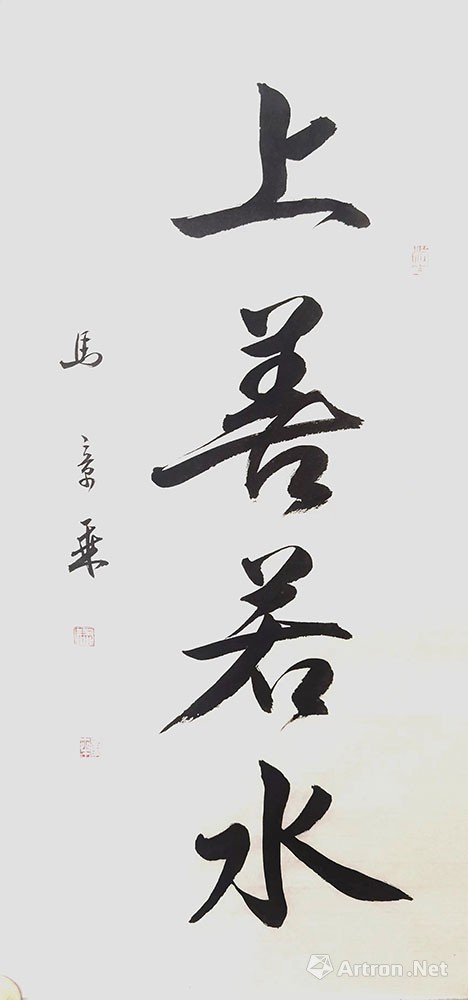 上善若水
馬章乘
Artron.Net